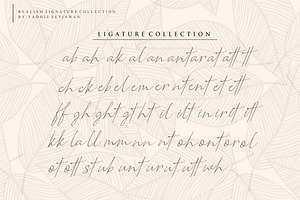 REALISM SIGNATURE COLLECTION
BY: YADHIE SETIAWAN
LIGATURE COLLECTION
ab ah ak al an an tar at att tt
ch ck eb el em er nt ent et ett
ff gh ght gt ht il ilt in ird ott
kk la ll mm nn nt oh on to rol
ot ott st ub unt ur ut utt wh